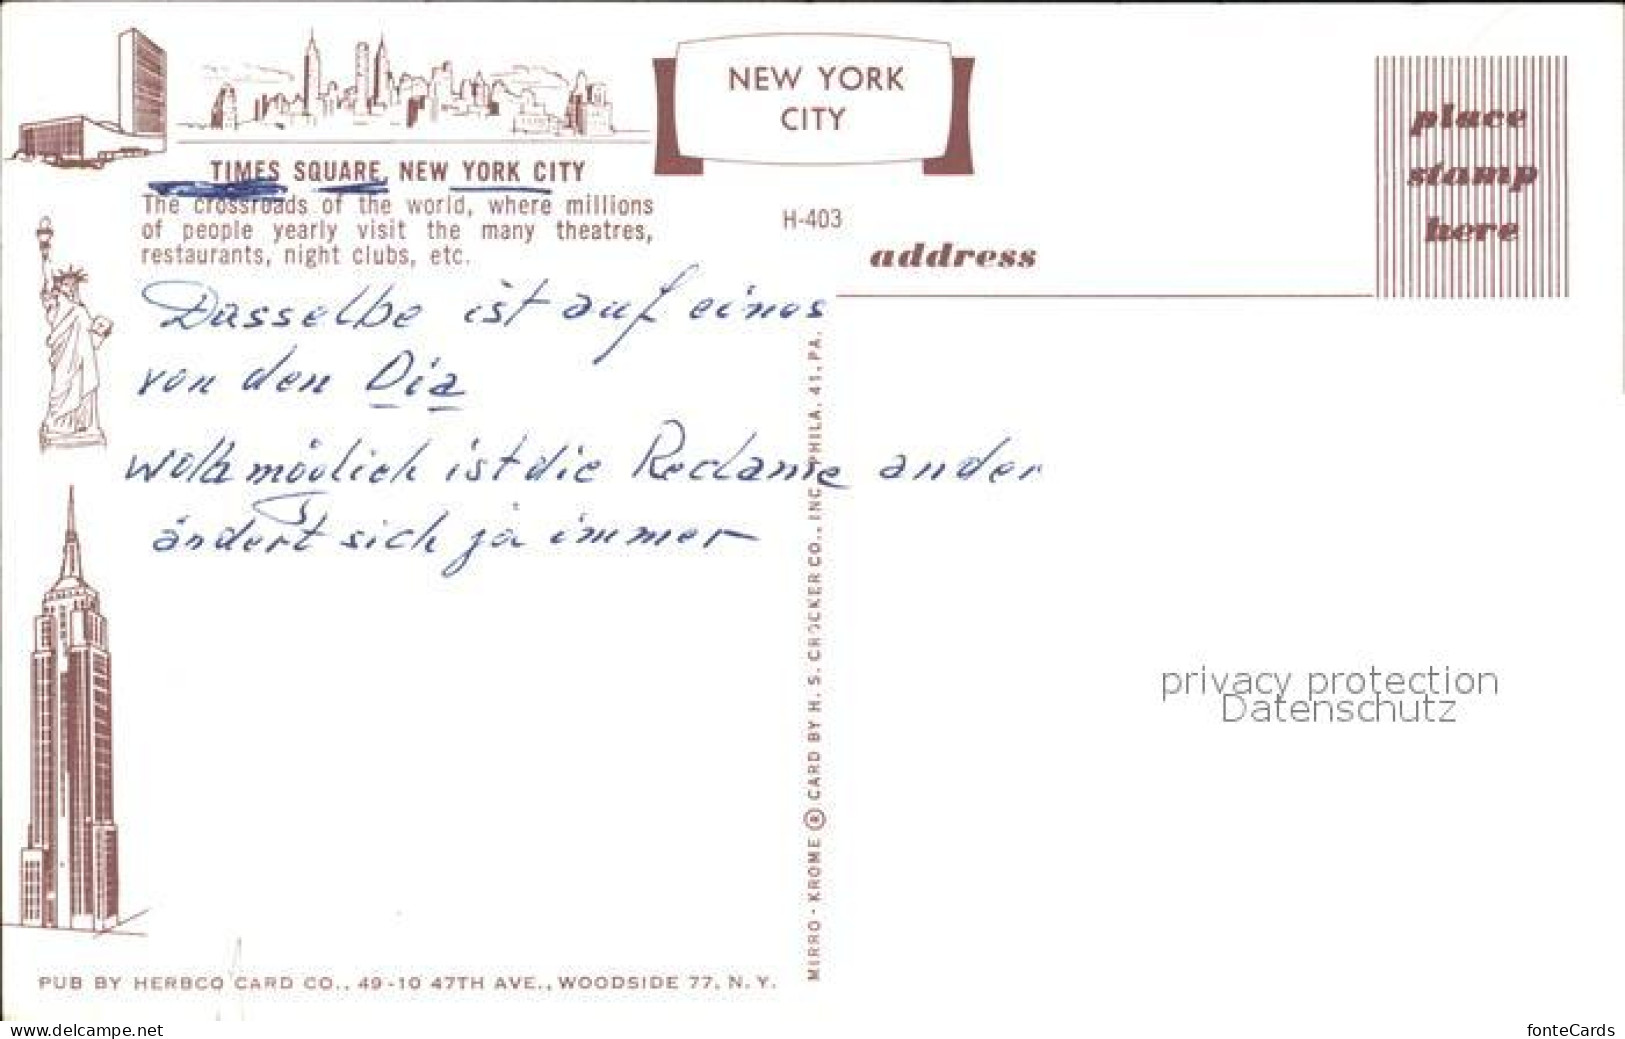 NEW YORK
CITY
TIMES SQUARE, NEW YORK CITY
The crossroads of the world, where millions
of people yearly visit the many theatres,
restaurants, night clubs, etc.
H-403
address
place
stamp
here
Dasselbe ist auf eines
von den Dia
womöglich ist die Reclame ander
ändert sich ja immer
MIRRO-KROME ® CARD BY H. S. CROCKER CO., INC. PHILA. 41, PA.
privacy protection
Datenschutz
PUB BY HERBCO CARD CO., 49-10 47TH AVE., WOODSIDE 77, N. Y.
www.delcampe.net
fonteCards